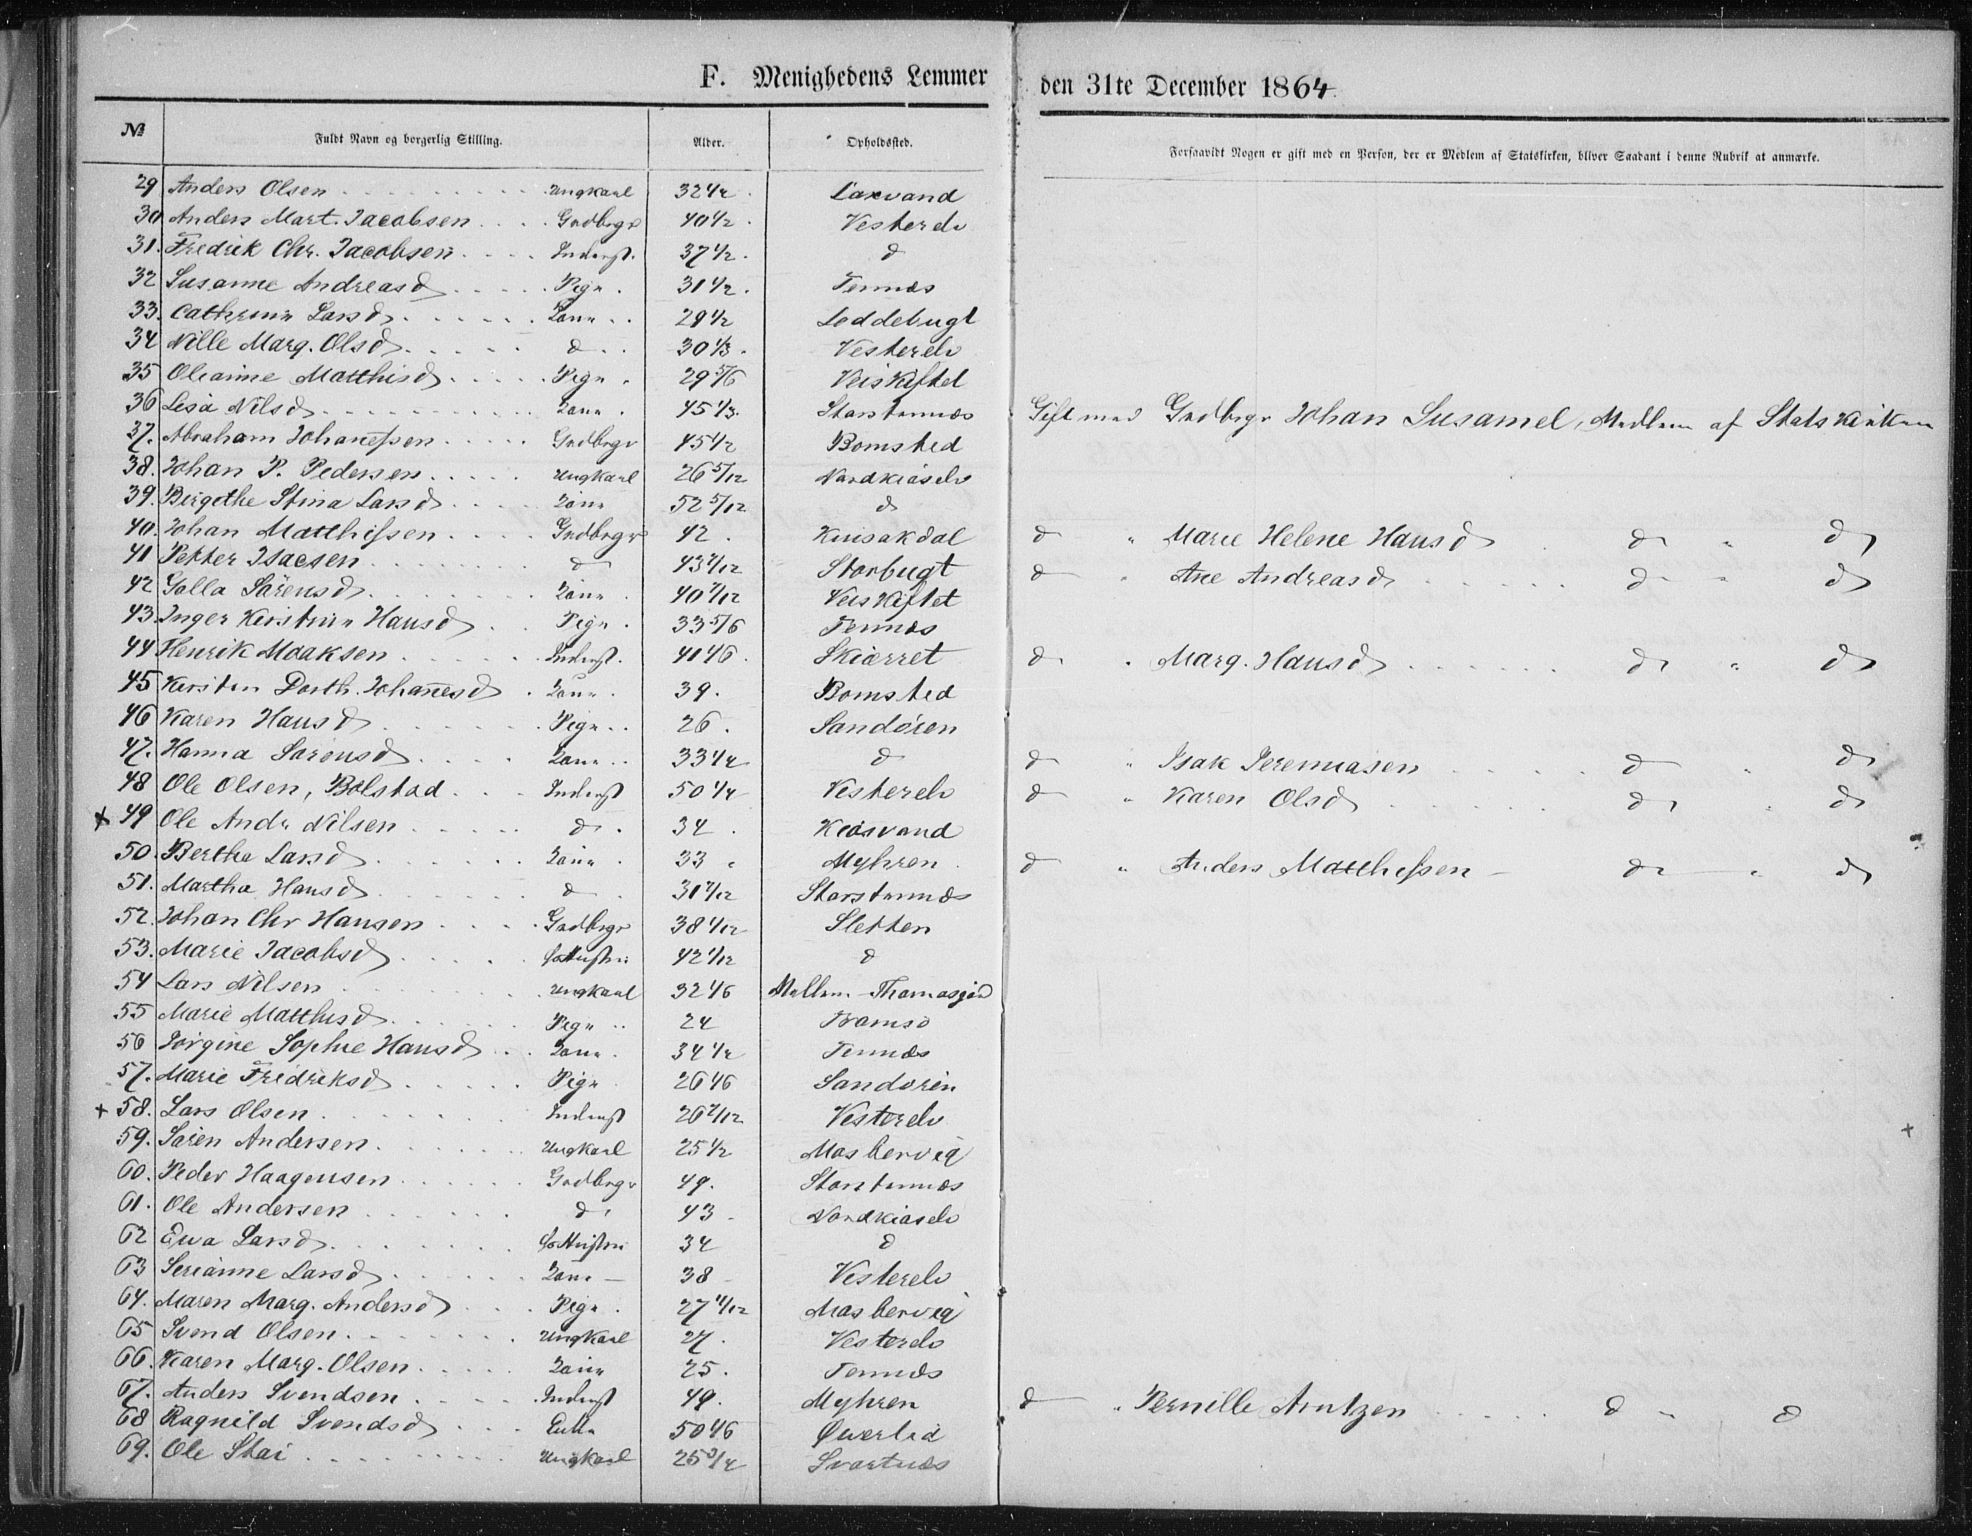 F. Menighedens Lemmer den 31te December 1864.
№ Fuldt Navn og borgerlig Stilling. Alder. Opholdssted. Forsaavidt Nogen er gift med en Person, der er Medlem af Statskirken, bliver Saadant i denne Rubrik at anmærke.
29 Anders Olsen Ungkarl 32 1/4 Laxvand
30 Anders Mart. Jacobsen Grdbrgr 40 1/2 Vesterelv
31. Fredrik Chr. Jacobsen Inderst. 37 1/2 d
32 Susanne Andreasd Pige 31 1/2 Tennæs
33. Cathrine Larsd Kone 29 1/2 Leddebugt
34 Nille Marg. Olsd d 30 1/3 Vesterelv
35 Oleanne Matthisd Pige 29 5/6 Veiskiftet
36 Lesa Nilsd Kone 45 1/3 Storstennæs Gift med Grdbrgr Johan Susamel, Medlem af Statskirken
37. Abraham Johanessen Grdbrgr 45 1/2 Bomsted
38. Johan P. Pedersen Ungkarl 26 5/12 Nordkiøselv
39. Birgethe Stina Larsd Kone 52 5/12 d
40. Johan Matthissen Grdbrgr 42 Kuisakdal d " Marie Helene Hansd d " d
41 Petter Isacsen d 43 7/12 Storbugt d " Ane Andreasd d " d
42 Golla Sørensd Kone 40 7/12 Veiskiftet
43. Inger Kirstine Hansd Pige 33 5/6 Tennæs
44 Henrik Moaksen Inderst. 41 1/6 Skiærret d " Marg. Hansd d " d
45 Kirsten Dorth. Johanesd Kone 39. Bomsted
46 Karen Hansd Pige 26. Sandøren
47. Hanna Sørensd Kone 33 1/4 d d " Isak Jeremiasen d " d
48 Ole Olsen, Bolstad Inderst 50 1/4 Vesterelv d " Karen Olsd d " d
+ 49 Ole Andr Nilsen d 34 Kiosvand
50. Berthe Larsd Kone 33 Myhren d " Anders Matthessen d " d
51. Martha Hansd d 31 7/12 Storstennæs
52. Johan Chr Hansen Grdbrgr 38 1/12 Sletten
53. Marie Jacobsd Hustru 42 1/12 d
54 Lars Nilsen Ungkarl 32 1/6 Mellem-Thomasjord
55 Marie Matthisd Pige 24 Tromsø
56 Jørgine Sophie Hansd Kone 34 1/4 Tennæs
57. Marie Fredriksd Pige 26 1/6 Sandøren
+ 58. Lars Olsen Inderst 26 7/12 Vesterelv +
59. Søren Andersen Ungkarl 25 1/2 Mosbervig
60. Peder Haagensen Grdbrgr 49. Storstennæs
61. Ole Andersen d 43 Nordkiøselv
62 Ewa Larsd Hustru 34 d
63 Serianne Larsd Kone 38 Vesterelv
64. Maren Marg. Andersd Pige 27 11/12 Mosbervig
65 Svend Olsen Ungkarl 27. Vesterelv
66. Karen Marg. Olsen Kone 25. Tennæs
67. Anders Svendsen Inderst 49. Myhren d " Pernille Arntzen d " d
68 Ragnild Svendsd Enke 50 1/6 Øverlid
69. Ole Stai Ungkarl 25 3/4 Svartnæs